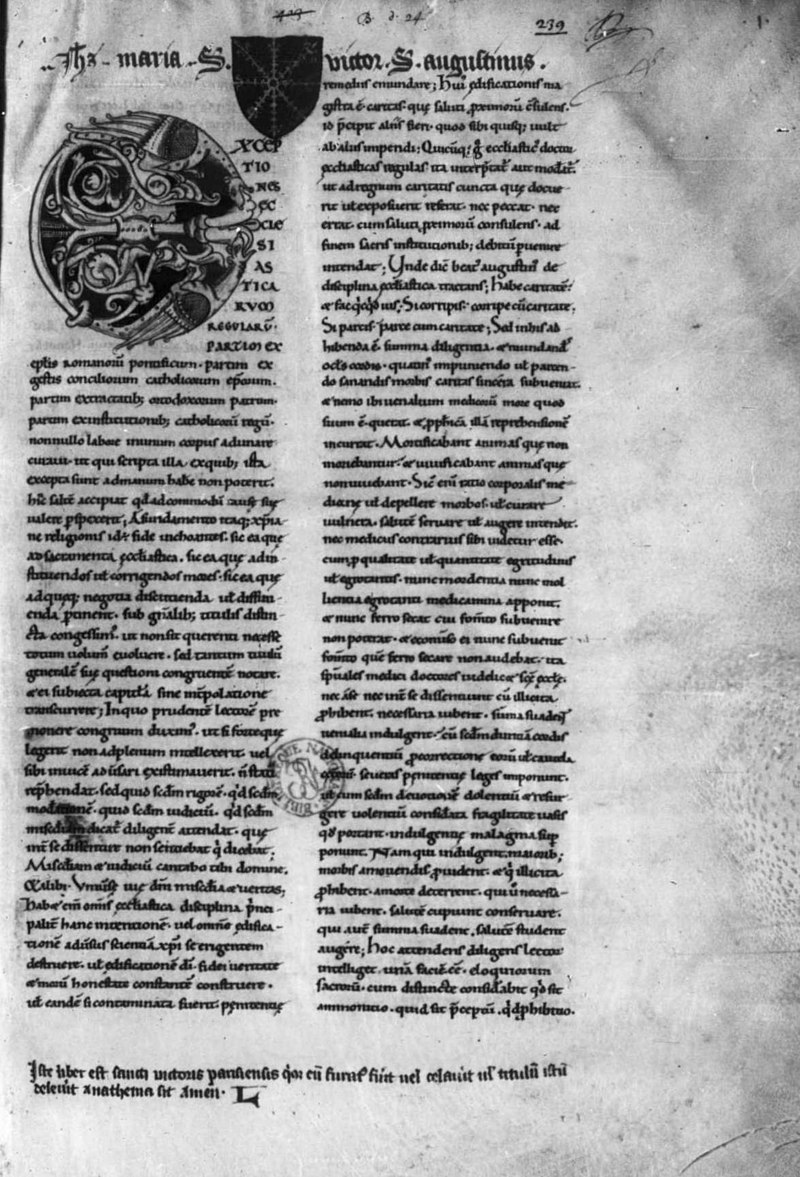 423 B d 24
239
1
Jhs - maria - S. victor . S. augustinus .
EXCEP
TIO
NES
EC
CLE
SI
AS
TICA
RVM
REGULARU̅.
PARTIM EX
eplis romanoru̅ pontificum. partim ex
gestis conciliorum catholicorum ep̅orum.
partim ex tractatib; ortodoxorum patrum.
partim ex institutionib; catholicoru̅ regu̅.
non nullo labore in unum corpus adunare
curaui. ut qui scripta illa ex quib; ista
excepta sunt ad manum habe̅ non poterit.
totum uolum̅ euoluere. sed tantum titulu̅
generale̅ sue questioni congruente̅ notare.
&ei subiecta capitla sine int̅polatione
transcurrere; In quo prudente̅ lectore̅ pre
monere congruum duxim᾽. ut si forte que
legerit non ad plenum intellexerit. uel
sibi inuice̅ aduersari existimauerit. n̅ statim
rep̅hendat. sed quid scd̅m rigore̅. q̅d scd̅m
moderatione̅. quid scd̅m iudicium. q̅d scd̅m
misericordiam dicat᾽ diligent̅ attendat. que
int̅ se dissentire non sentiebat q̅ dicebat;
Miscd̅iam & iudicium cantabo tibi domine.
&alibi. Vniuerse uie dn̅i misc̅dia & ueritas;
Habet en̅ om̅is eccl̅iastica disciplina p̅nci-
palit̅ hanc intentione̅. uel omne̅ edifica-
tione̅ aduersus scientia̅ xp̅i se erigentem
destruere. ul̅ edificatione̅ d̅i. fidei ueritate
& moru̅ honestate constante̅ construere.
ul̅ eande̅ si contaminata fuerit. penitentie
remediis emundare; Hui᾽ edificationis ma
gistra e̅ caritas. que saluti proximoru̅ c̅sulens.
id p̅cipit aliis fieri. quod sibi quisq; uult
ab aliis impendi; Quicu̅q; g̅ eccl̅iastic᾽ doctor
eccl̅iasticas regulas ita interp̅tat᾽ aut modat᾽.
ut ad regnum caritatis cuncta que docue
rit ul̅ exposuerit referat. nec peccat. nec
errat. cum saluti proximoru̅ consulens. ad
finem sacris institutionib; debitu̅ puenire
intendat; Vnde dic̅ beat᾽ augustin᾽ de
disciplina eccl̅iastica tractans; habe caritate̅.
& fac q̅cq̅d uis. Si corripis. corripe cu̅ caritate.
Si parcis. parce cum caritate; Sed in his ad
hibenda e̅ summa diligentia. & mundand᾽
do sanandis morbis caritas sincera subueniat.
& nemo ibi uenalium medicoru̅ more quod
suum e̅. querat. & pphetica̅ illa̅ reprehensione̅
incurrat. Mortificabant animas que non
moriebantur. & uiuificabant animas que
non uiuebant. Sic̅ eni̅ ratio corporalis me
dicine ul̅ depellere morbos. ul̅ curare
uulnera. salute̅ seruare ul̅ augere intendit.
nec medicus contrarius sibi uidetur esse.
cum p̅ qualitate ul̅ quantitate egritudinis
ul̅ egrotantis. nunc mordentia nunc mol
lientia egrotanti medicamina apponit.
& nunc ferro secat cui fom̅to subuenire
non poterat. & econuerso ei nunc subuenit
fom̅to que̅ ferro secare non audebat. ita
sp̅uales medici doctores uidelic̅ & sc̅e eccl̅e.
nec a se nec int̅ se dissentiunt cu̅ illicita
p̅hibent. necessaria iubent. su̅ma suade̅t
uenialia indulgent. cu̅ scd̅m duritia̅ cordis
delinquentiu̅ p̅ correctione eoru̅ ul̅ cautela
ceteru̅. seueras penitentie leges imponunt.
ul̅ cum scd̅m deuotione̅ dolentiu̅ & resur
gere uolentiu̅ considerata fragilitate uasis
q̅d portant. indulgentie malagma sup̅
ponunt. Nam qui indulgent. maiorib;
morbis amouendis prouident. & q̅ illicita
p̅hibent. amorte deterrent. qui u̅ necessa-
ria iubent. salute̅ cupiunt conseruare.
qui aut̅ summa suadent. salute̅ student
augere; hoc attendens diligens lector
intelliget. una̅ facie̅ e̅e. eloquiorum
sacroru̅. cum distincte considerabit q̅d sit
ammonitio. quid sit p̅ceptu̅. q̅d p̅hibitio.
Iste liber est sancti victoris parisiensis q̅cu̅q; eu̅ furat᾽ fu̅it uel celauit ul᾽ titulu̅ istu̅
deleuit anathema sit Amen.